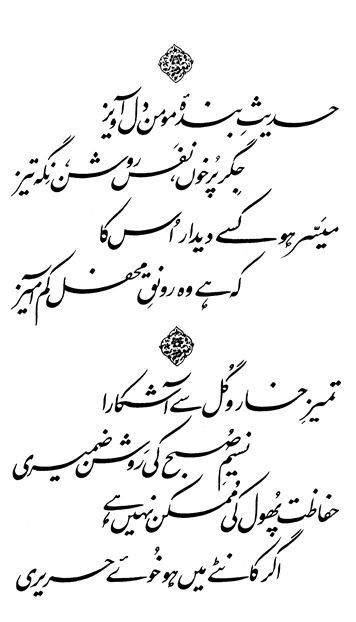 حدیثِ بندۂ مومن دل آویز
جِگر پُرخوں، نفَس روشن، نِگہ تیز
میَسّر ہو کسے دیدار اُس کا
کہ ہے وہ رونقِ محفل کم آمیز
تمیزِ خار و گُل سے آشکارا
نسیمِ صُبح کی رَوشن ضمیری
حفاظت پھُول کی مُمکن نہیں ہے
اگر کانٹے میں ہو خُوئے حریری